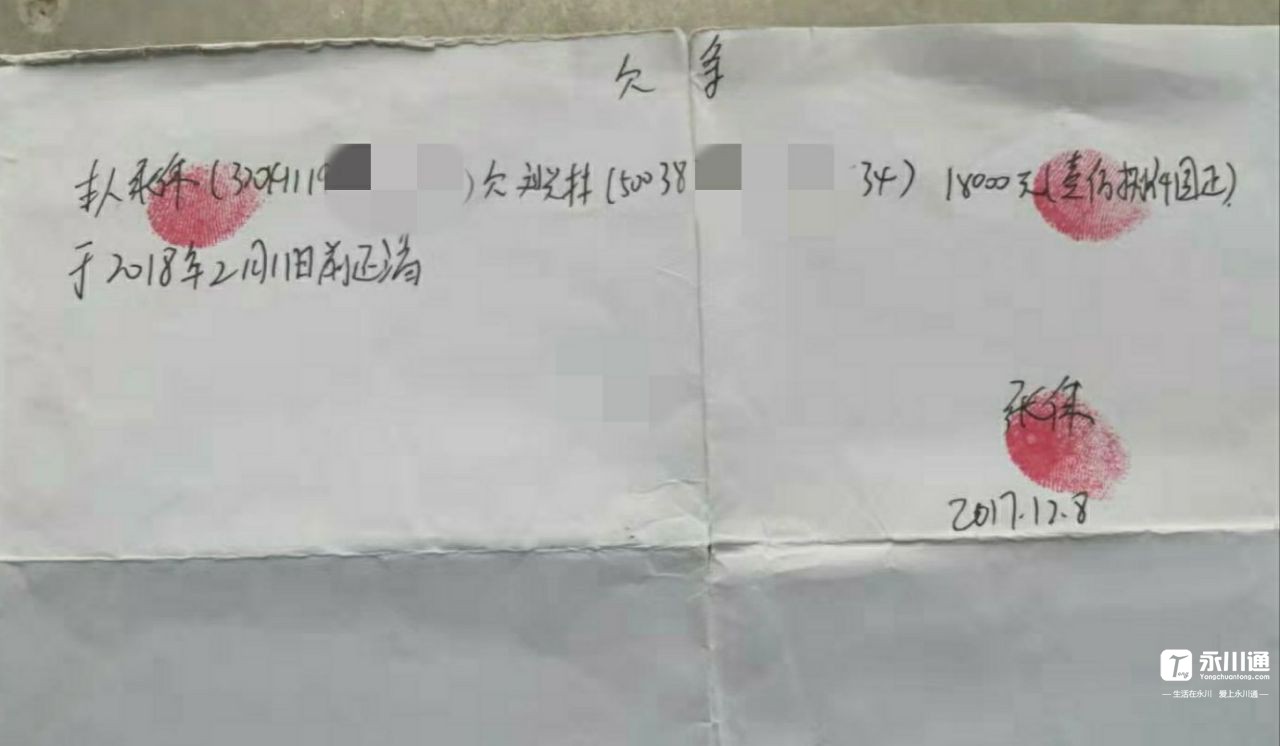 欠条
本人张伟（3204119 ）欠刘兴林（50038 34）18000元（壹佰捌仟圆正）
于2018年2月11日前还清
张伟
2017.12.8
永川通
Yongchuantong.com
生活在永川 爱上永川通